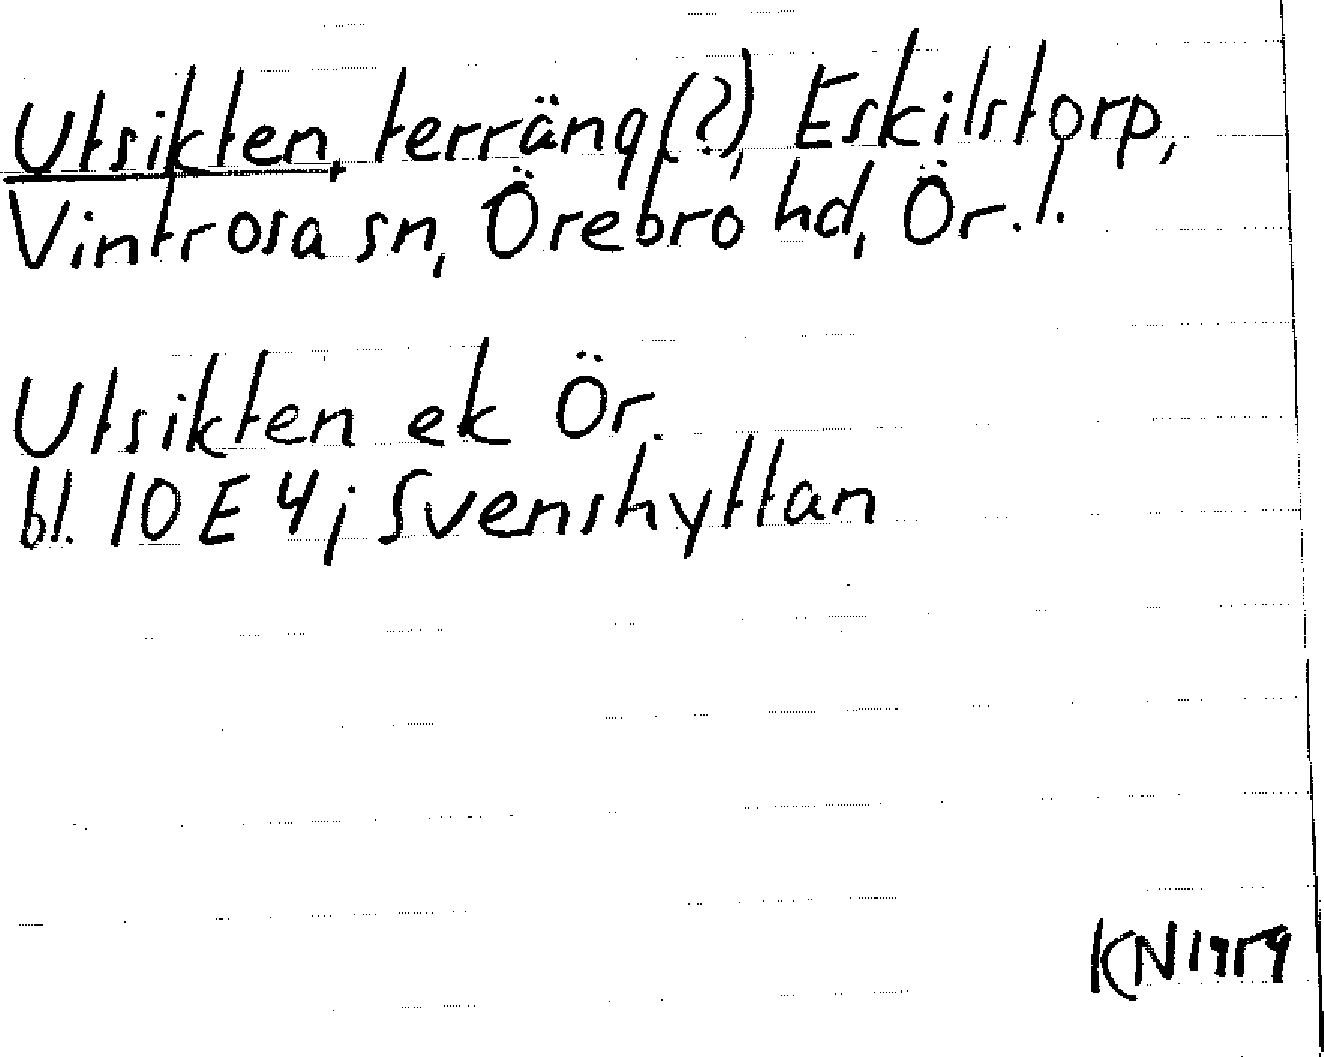 Utsikten, terräng(?), Eskilstorp,
Vintrosa sn, Örebro hd, Ör. l.
Utsikten ek Ör.
bl. 10 E 4j Svenshyttan
KN 1959